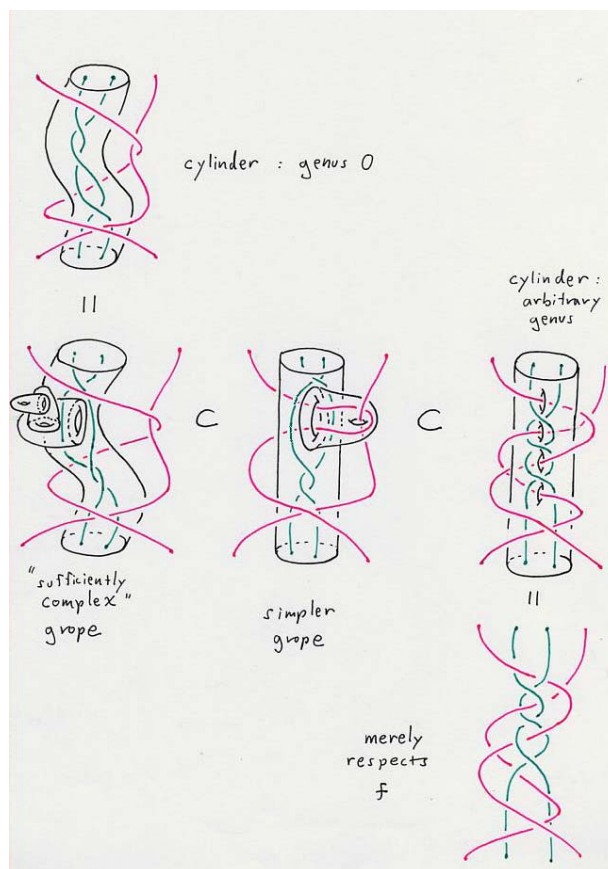 cylinder : genus 0
=
cylinder :
arbitrary
genus
C
C
"sufficiently
complex"
grope
simpler
grope
=
merely
respects
f